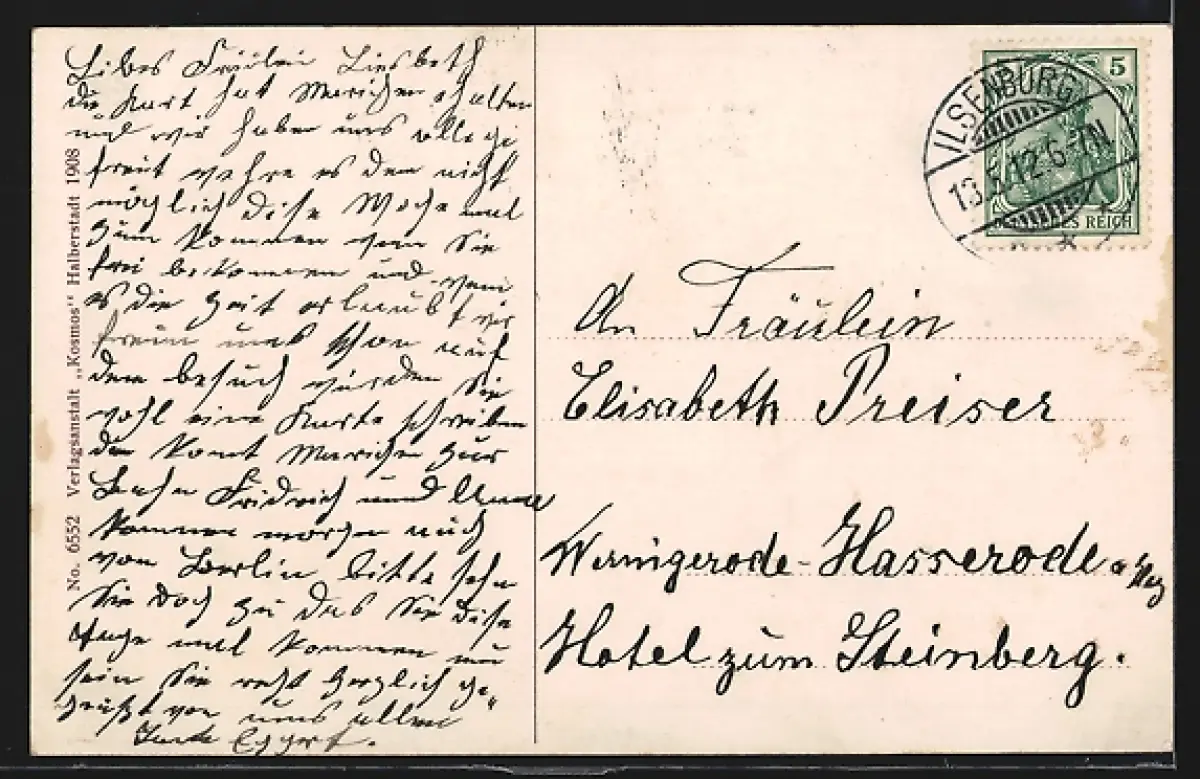 Libes Fräulein Liesbeth
die Karte hat Mariechen erhalten
und wir haben uns alle ge
freut währe es den nicht
möglich dise Woche mal
zum kommen wen Sie
frei bekommen und wen
es die Zeit erlaubt wir
freun uns schon auf
den besuch würden Sie
wohl eine Karte schreiben
dan komt Mariechen zur
Bahn Fridrich und
kommen morgen auch
von Berlin bitte sehn
Sie doch zu das Sie dise
Tage mal kommen nun
sein Sie recht herzlich ge„
grüßt von uns allen
Eggert.
No. 6552 Verlagsanstalt „Kosmos“ Halberstadt 1908
5
DEUTSCHES REICH
ILSENBURG
13.5.12.6-7N
An Fräulein
Elisabeth Preiser
Wernigerode-Hasserode a Harz
Hotel zum Steinberg.